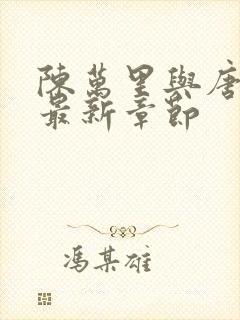 陳萬里與唐
最新章節
馮某雄